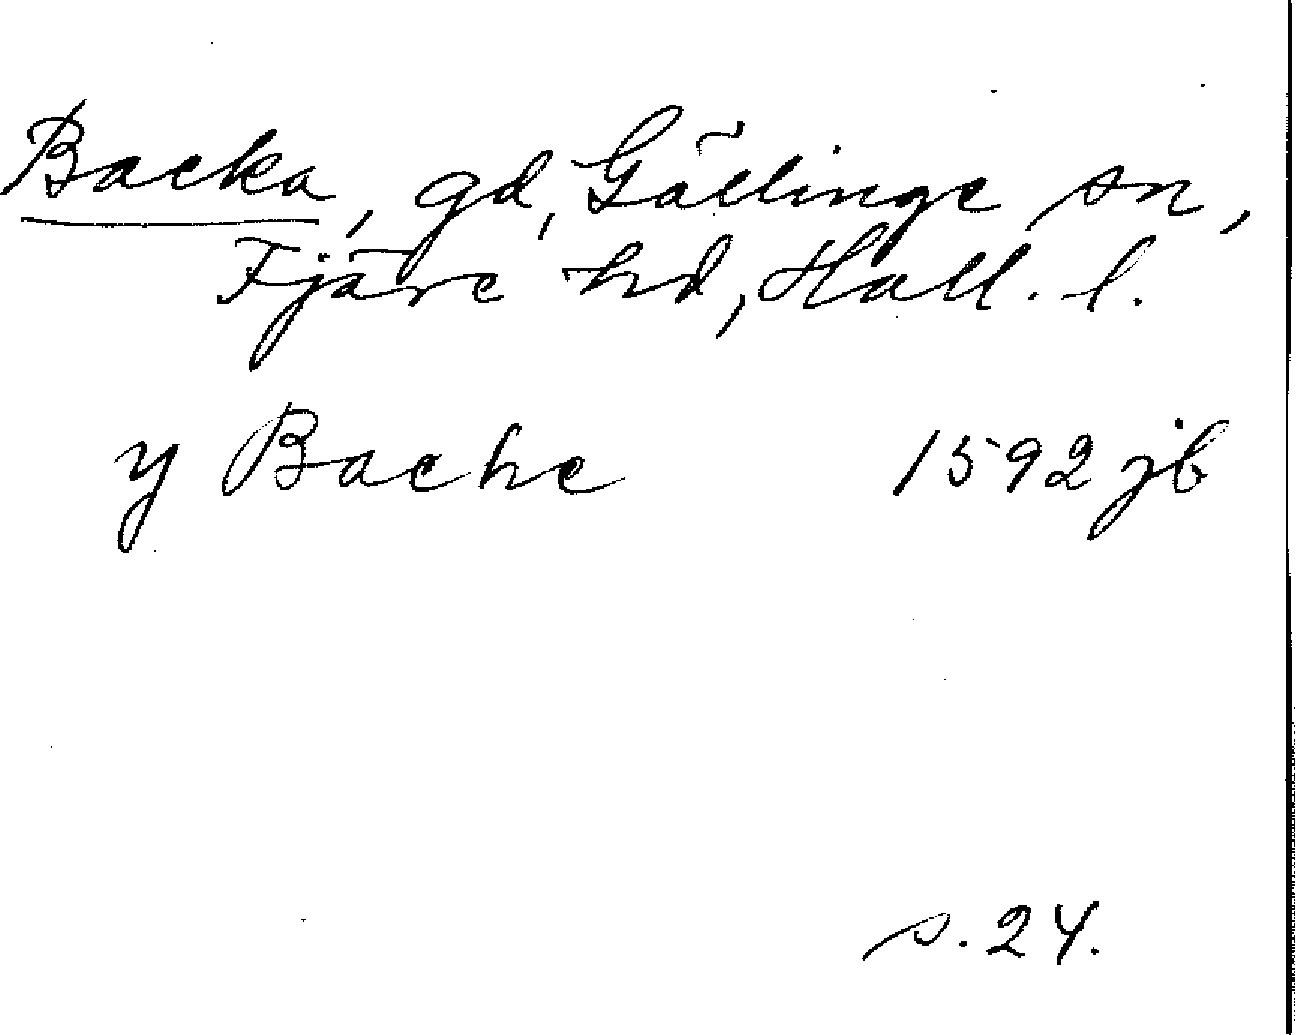 Backa, gd, Gällinge sn,
Fjäre hd, Hall. l.
y Backe 1592 jb
s. 24.